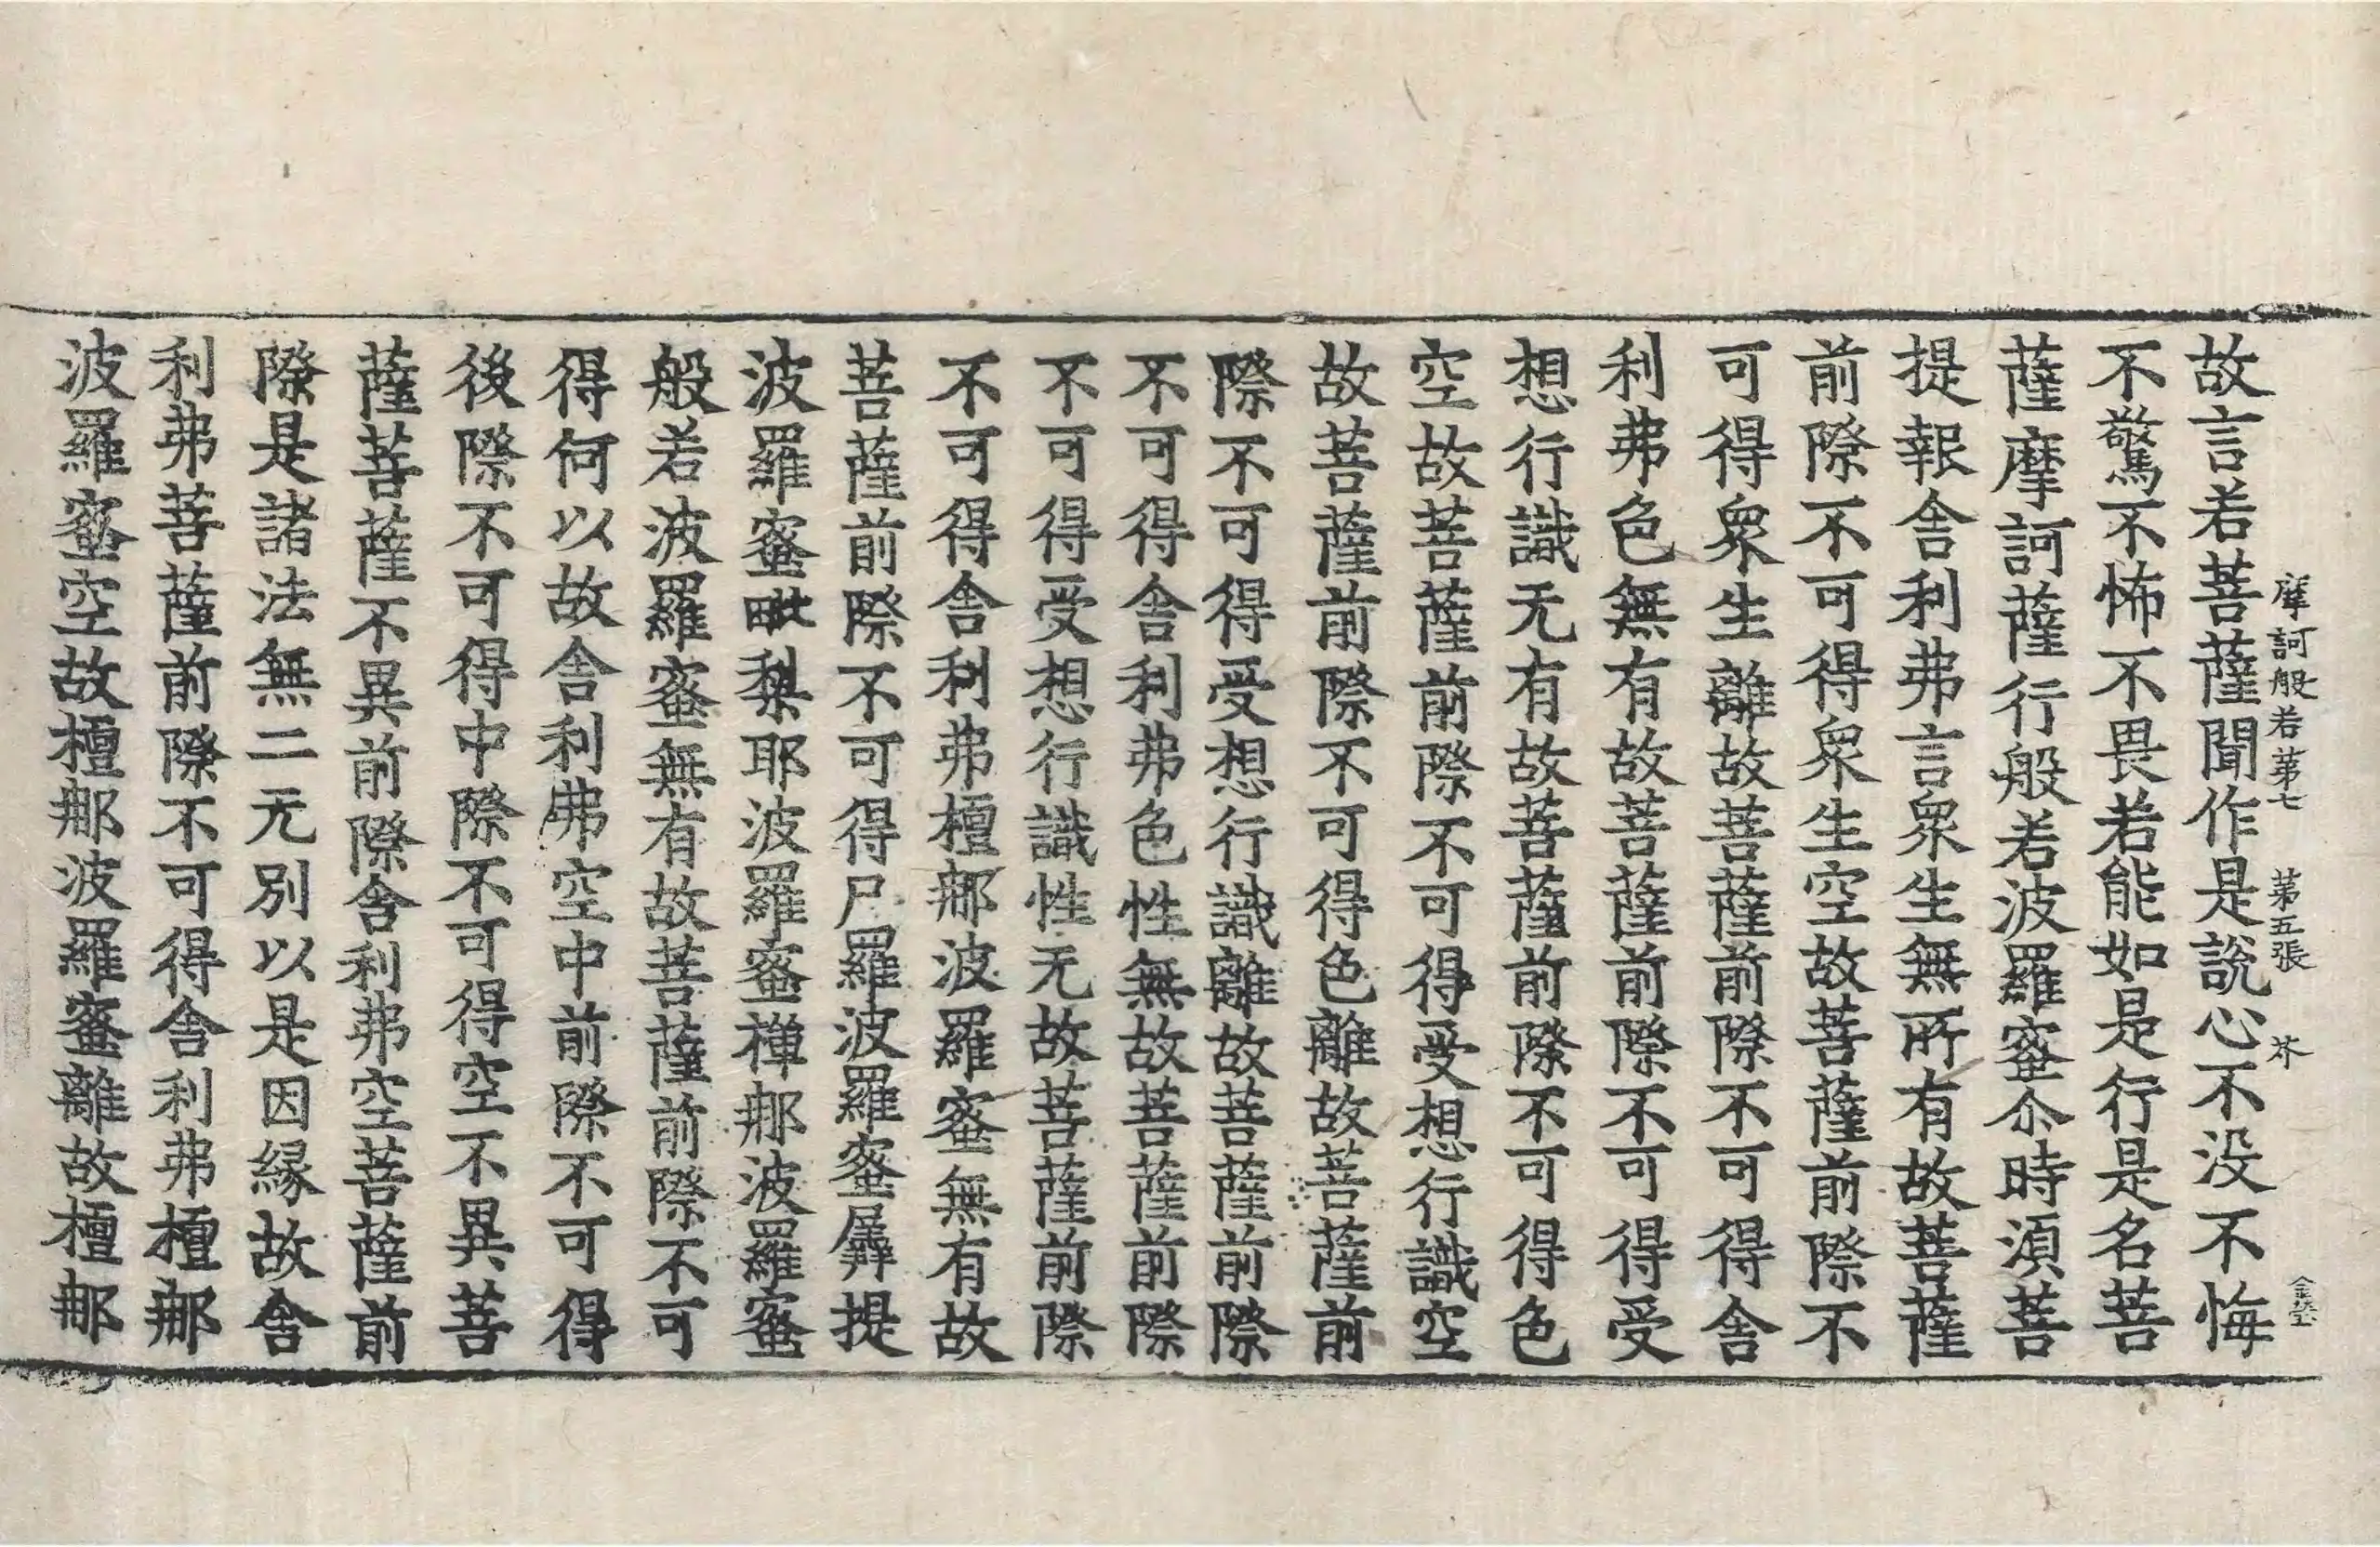 摩訶般若第七 第五張 芥
故言若菩薩聞作是說心不没不悔
不驚不怖不畏若能如是行是名菩
薩摩訶薩行般若波羅蜜尒時湏菩
提報舍利弗言衆生無所有故菩薩
前際不可得衆生空故菩薩前際不
可得衆生離故菩薩前際不可得舍
利弗色無有故菩薩前際不可得受
想行識无有故菩薩前際不可得色
空故菩薩前際不可得受想行識空
故菩薩前際不可得色離故菩薩前
際不可得受想行識離故菩薩前際
不可得舍利弗色性無故菩薩前際
不可得受想行識性无故菩薩前際
不可得舍利弗檀那波羅蜜無有故
菩薩前際不可得尸羅波羅蜜羼提
波羅蜜毗梨耶波羅蜜禪那波羅蜜
般若波羅蜜無有故菩薩前際不可
得何以故舍利弗空中前際不可得
後際不可得中際不可得空不異菩
薩菩薩不異前際舍利弗空菩薩前
際是諸法無二无別以是因緣故舍
利弗菩薩前際不可得舍利弗檀那
波羅蜜空故檀那波羅蜜離故檀那